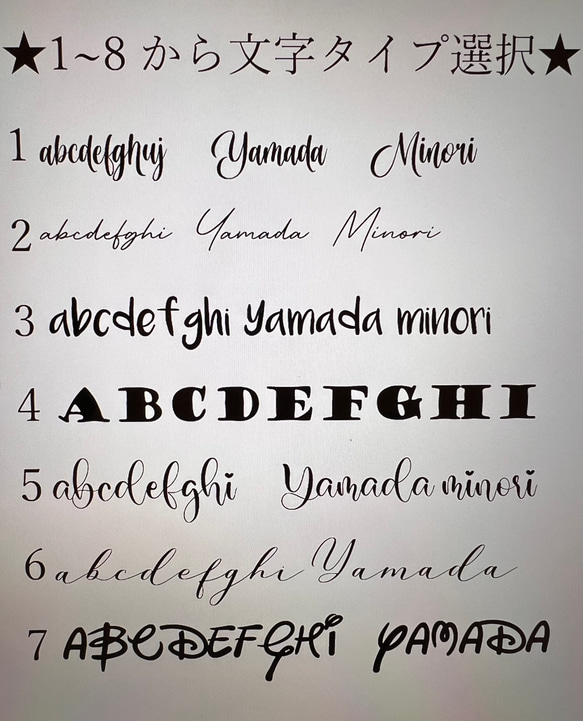 ★1~8 から文字タイプ選択★
1 abcdefghuj Yamada Minori
2 abcdefghi Yamada Minori
3 abcdefghi yamada minori
4 ABCDEFGHI
5 abcdefghi Yamada minori
6 abcdefghi Yamada
7 ABCDEFGHi YAMADA